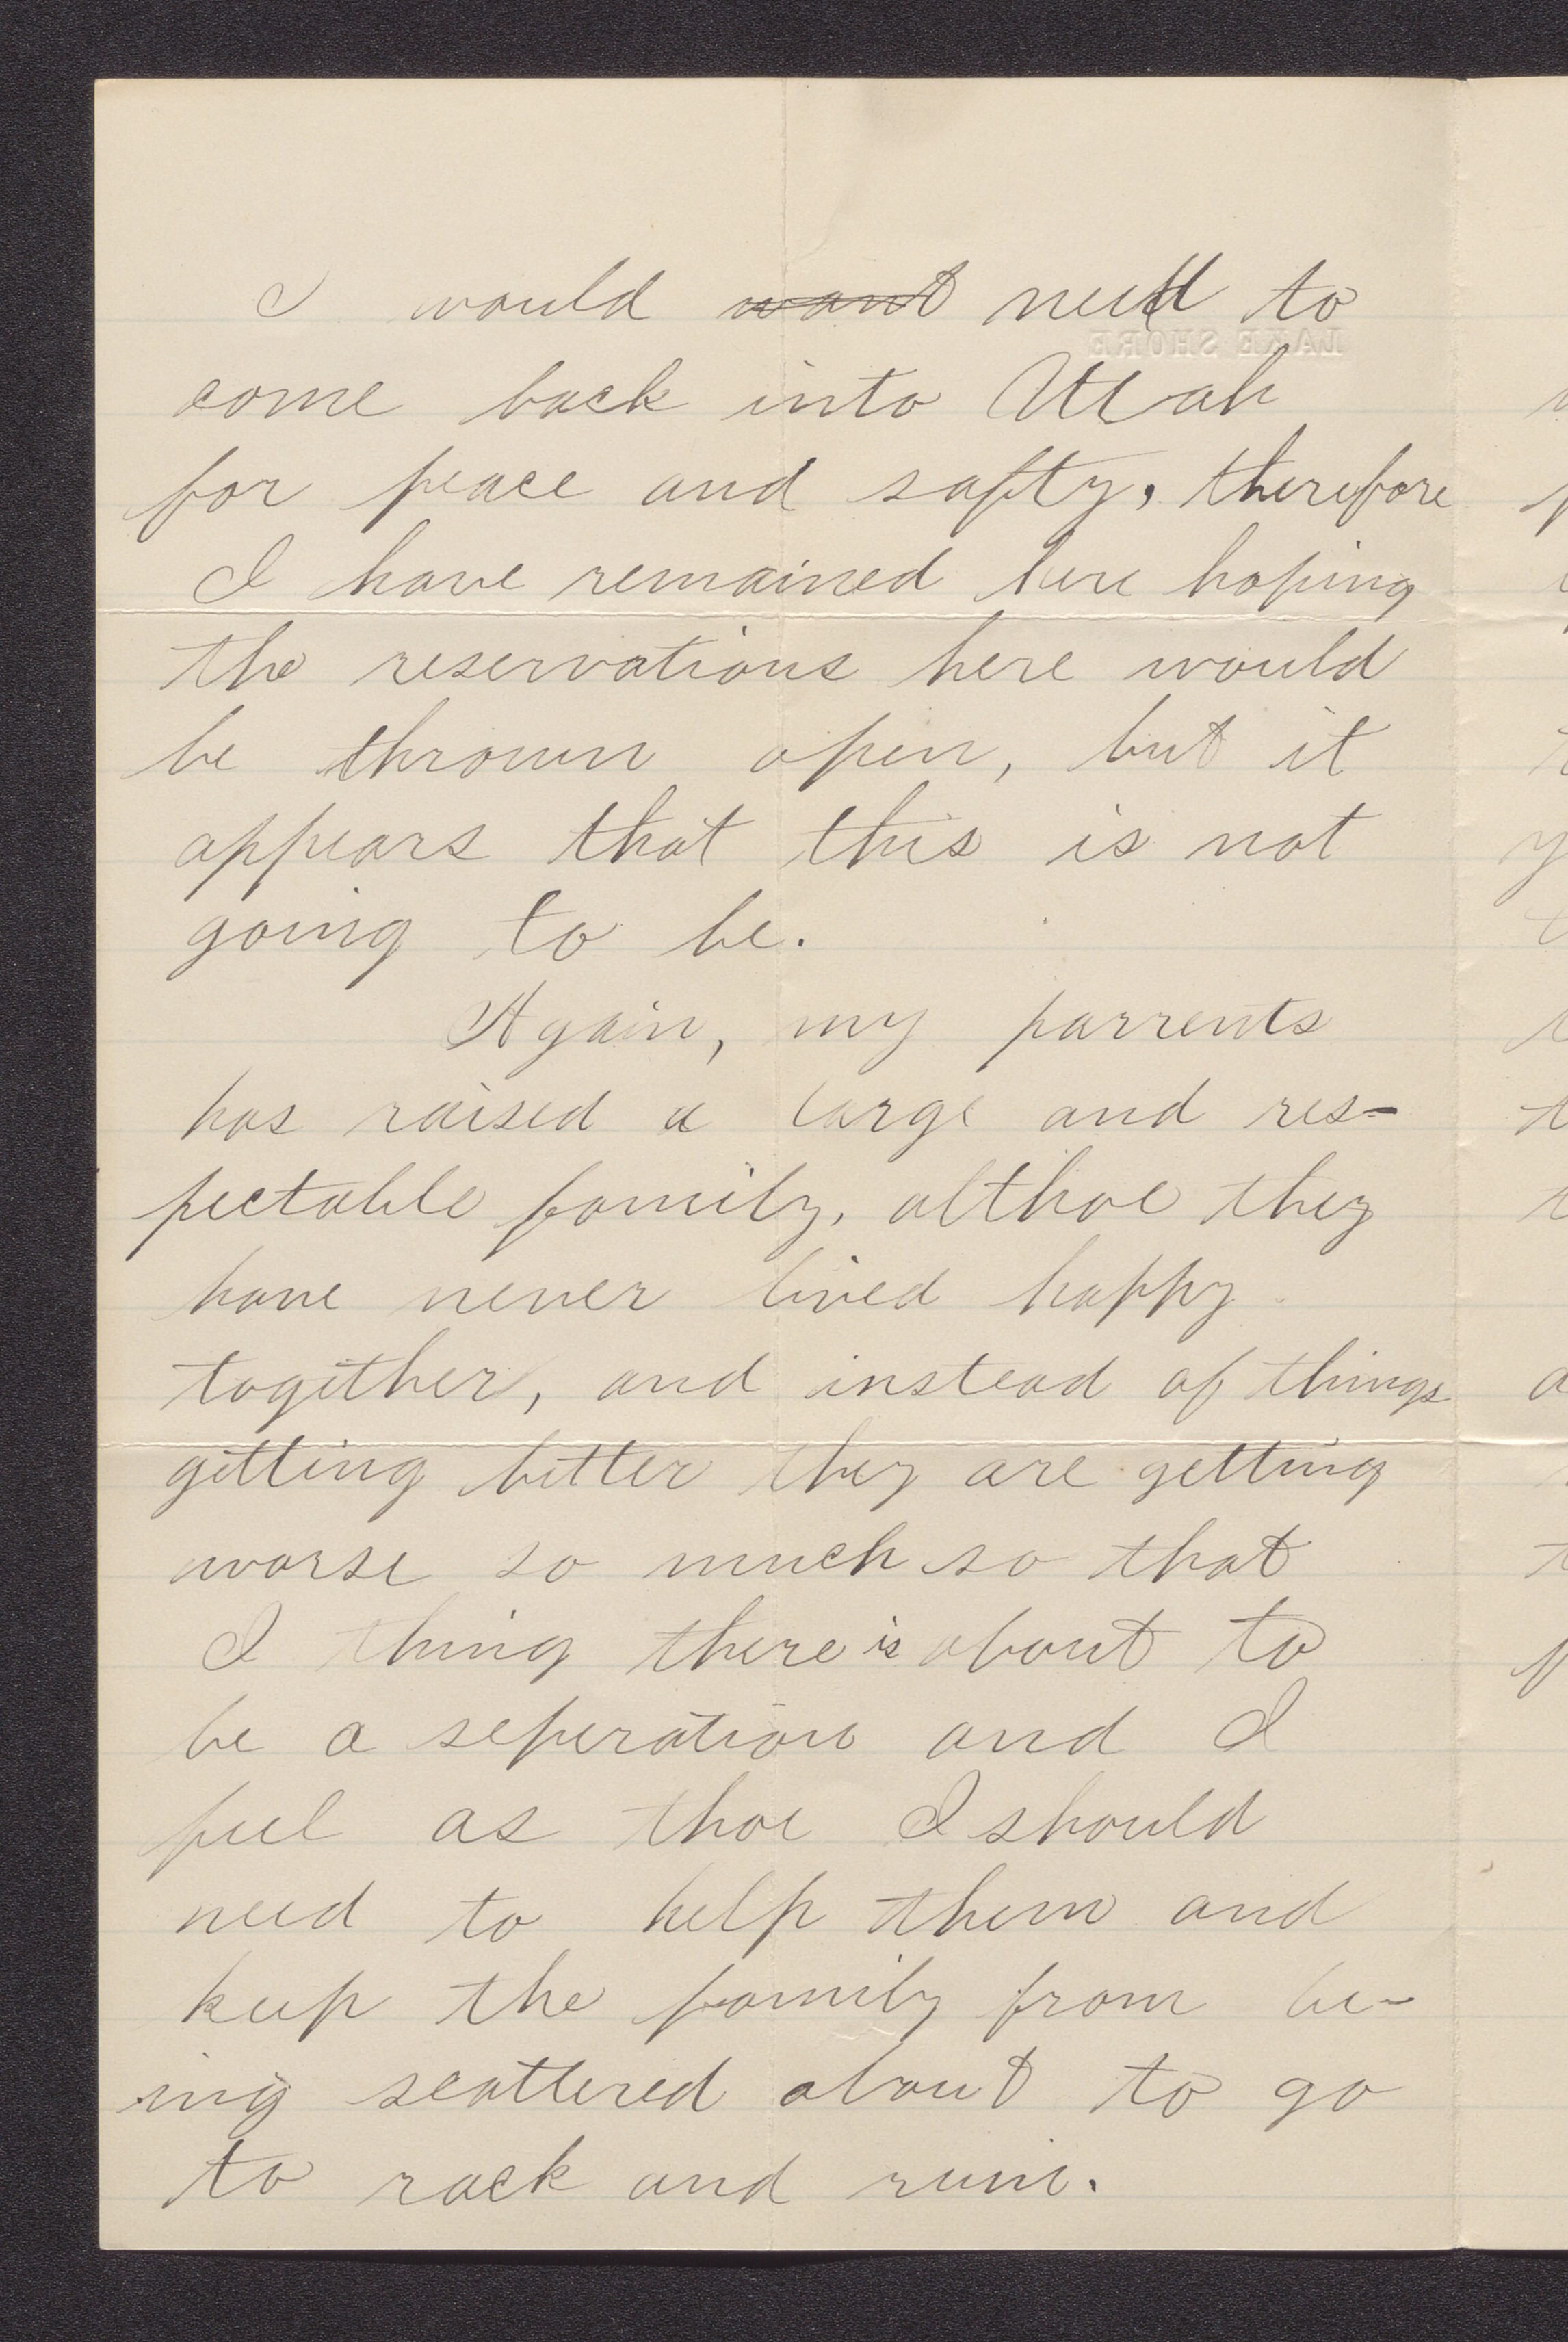 I would ~~want~~ need to
LAKE SHORE
come back into Utah
for peace and safty, therefore
I have remained here hoping
the reservations here would
be thrown open, but it
appears that this is not
going to be.
Again, my parrents
has raised a large and res-
pectable family, althoe they
have never lived happy
together, and instead of things
getting better they are getting
worse so much so that
I thing there is about to
be a seperation and I
feel as thoe I should
need to help them and
keep the family from be-
ing scattered about to go
to rack and ruin.